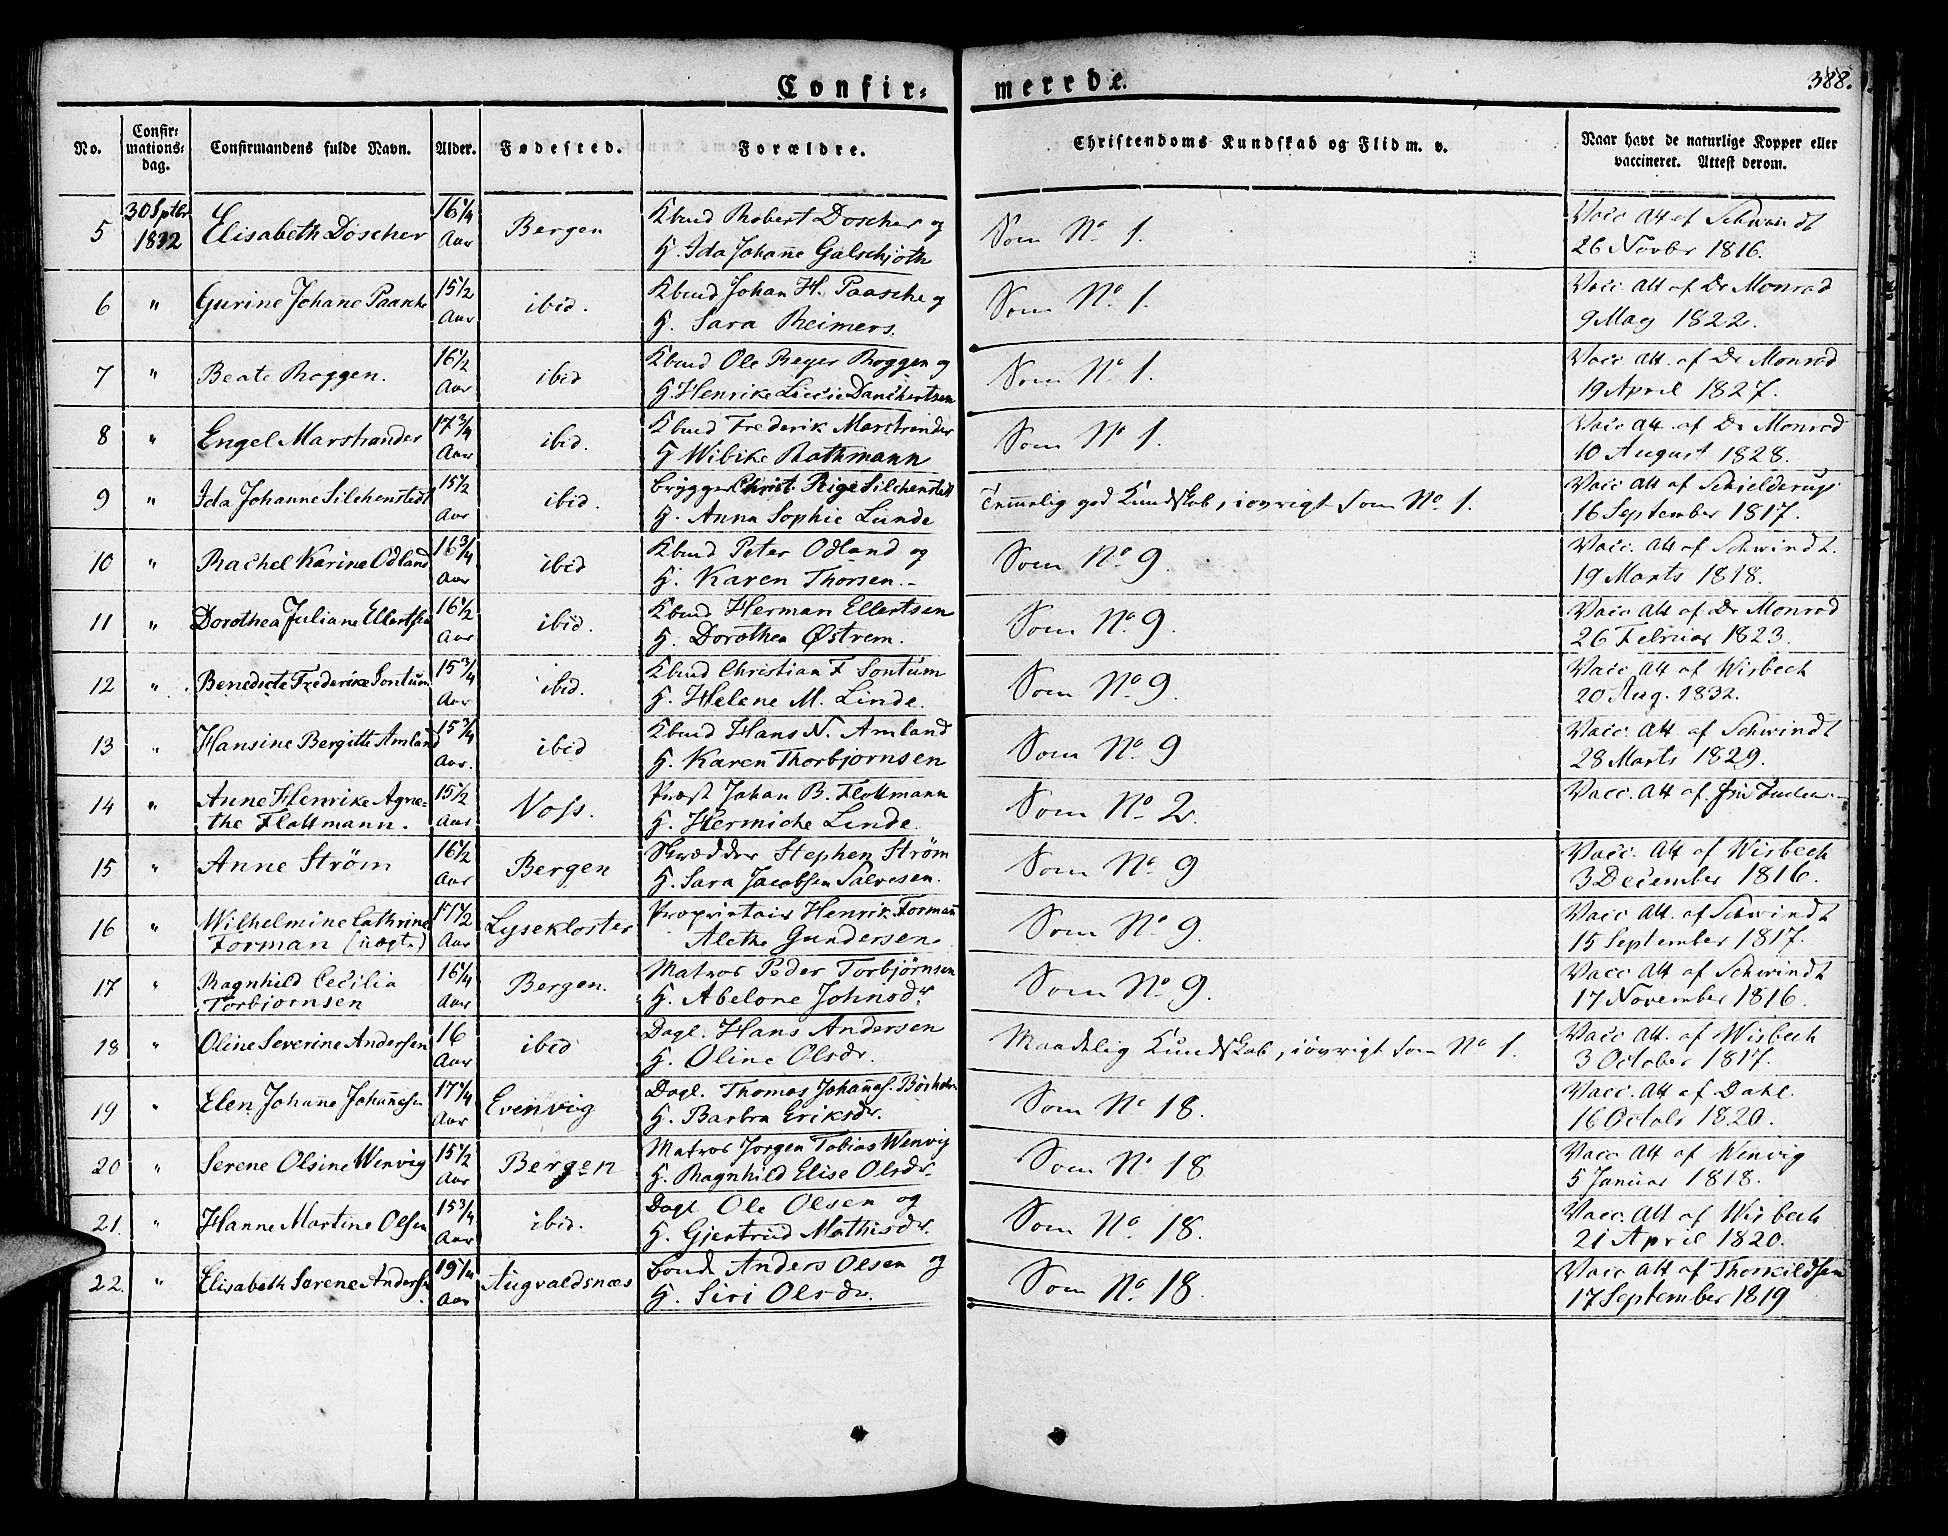 Confir= merede.
388.
No. Confir=mations=dag. Confirmandens fulde Navn. Alder. Fødested. Forældre. Christendoms Kundskab og Flid m. v. Naar havt de naturlige Kopper eller vaccineret. Attest derom.
5 30 Sptbr 1832 Elisabeth Döscher 16 1/4 Aar Bergen Kbmd Robert Doscher og Som No. 1. Vacc Att af Schwindt
H. Ida Johan̄e Galschjöth 26 Novbr 1816.
6 " Gurine Johan̄e Paasche 15 1/2 Aar ibid. Kbmd Johan H. Paasche og Som No. 1. Vacc Att af Dr Monrad
H. Sara Reimers. 9 May 1822.
7 " Beate Roggen. 16 1/2 Aar ibid Kbmd Ole Beyer Roggen og Som No. 1. Vacc Att. af Dr Monrad
H. Henrike Lucie Danckertsen 19 April 1827.
8 " Engel Marstrander 17 3/4 Aar ibid. Kbmd Frederik Marstrander Som No 1. Vacc Att. af Dr Monrad
H Wibike Rothmann 10 August 1828.
9 " Ida Johanne Silchenstedt 15 1/2 Aar ibid. Brygger Christ. Silchenstedt Tem̄elig god Kundskab, iøvrigt som No. 1. Vacc Att af Schielderup
H. Anna Sophie Lunde 16 September 1817.
10 " Rachel Karine Odland 16 3/4 Aar ibid Kbmd Peter Odland og Som No 9. Vacc. Att af Schwindt.
H. Karen Thorsen.- 19 Marts 1818.
11 " Dorothea Juliane Ellertsen 16 1/2 Aar ibid. Kbmd Herman Ellertsen Som No. 9. Vacc Att af Dr Monrad
H. Dorothea Østrem. 26 Februar 1823.
12 " Benedicte Frederike Sontum 15 3/4 Aar ibid. Kbmd Christian F Sontum Som No 9. Vacc Att af Wisbech
H. Helene M. Linde. 20 Aug. 1832.
13 " Hansine Bergitte Amland 15 3/4 Aar. ibid Kbmd Hans N. Amland Som No. 9 Vacc. Att af Schwindt
H. Karen Thorbjørnsen 28 Marts 1829.
14 " Anne Henrike Agne= 15 1/2 Aar Voss. Præst Johan B. Flottmann Som No. 2. Vacc. Att af
the Flottmann. H. Hermiche Linde.
15 " Anne Strøm 16 1/2 Aar Bergen Skrædder Stephen Strøm Som No. 9 Vacc. Att af Wisbech
H. Sara Jacobsen Salvesen. 3 December 1816.
16 " Wilhelmine Cathrine 17 1/2 Aar Lysekloster Proprietair Henrik Forman̄ Som No. 9. Vacc Att. af Schwindt
Forman (uægte) Alethe Gundersen. 15 September 1817.
17 " Ragnhild Cecilia 16 1/4 Aar Bergen. Matros Peder Torbjørnsen Som No. 9. Vacc Att af Schwindt
Torbjørnsen H. Abelone Johnsdr. 17 November 1816.
18 " Oline Severine Andersen 16 Aar ibid Dagl. Hans Andersen Maadelig Kundskab, iøvrigt som No 1. Vacc Att. af Wisbech
H. Oline Olsdr. 3 October 1817.
19 " Elen Johan̄e Johan̄esen 17 1/4 Aar Evenvig Dagl. Thomas Johan̄es. Som No 18. Vacc Att af Dahl.
H. Barbra Eriksdr. 16 Octobr 1820.
20 " Serene Olsine Wenvig 15 1/2 Aar Bergen Matros Jorgen Tobias Wenvig Som No 18 Vacc Att af Wenvig
H. Ragnhild Elise Olsdr. 5 Januar 1818.
21. " Hanne Martine Olsen 15 3/4 Aar ibid. Dagl Ole Olsen og Som No. 18. Vacc. Att af Wisbech
H. Gjertrud Mathisdr. 21 April 1820.
22. " Elisabeth Serene Andersen 19 1/4 Aar Augvaldsnæs Bonde Anders Olsen og Som No. 18. Vacc Att af Thorkildsen
H. Siri Olsdr. 17 September 1819